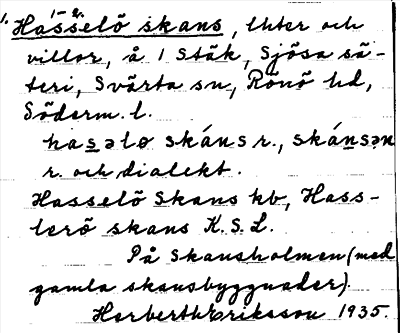 1. Hasselö skans, lhter och
villor, å 1 Stäk, Sjösa sä-
teri, Svärta sn, Rönö hd,
Söderm. l.
hasəlø skáns r., skánsən
r. och dialekt.
Hasselö Skans kb, Hass-
lerö skans K.S.L.
På Skansholmen (med
gamla skansbyggnader).
Herberth Eriksson 1935.